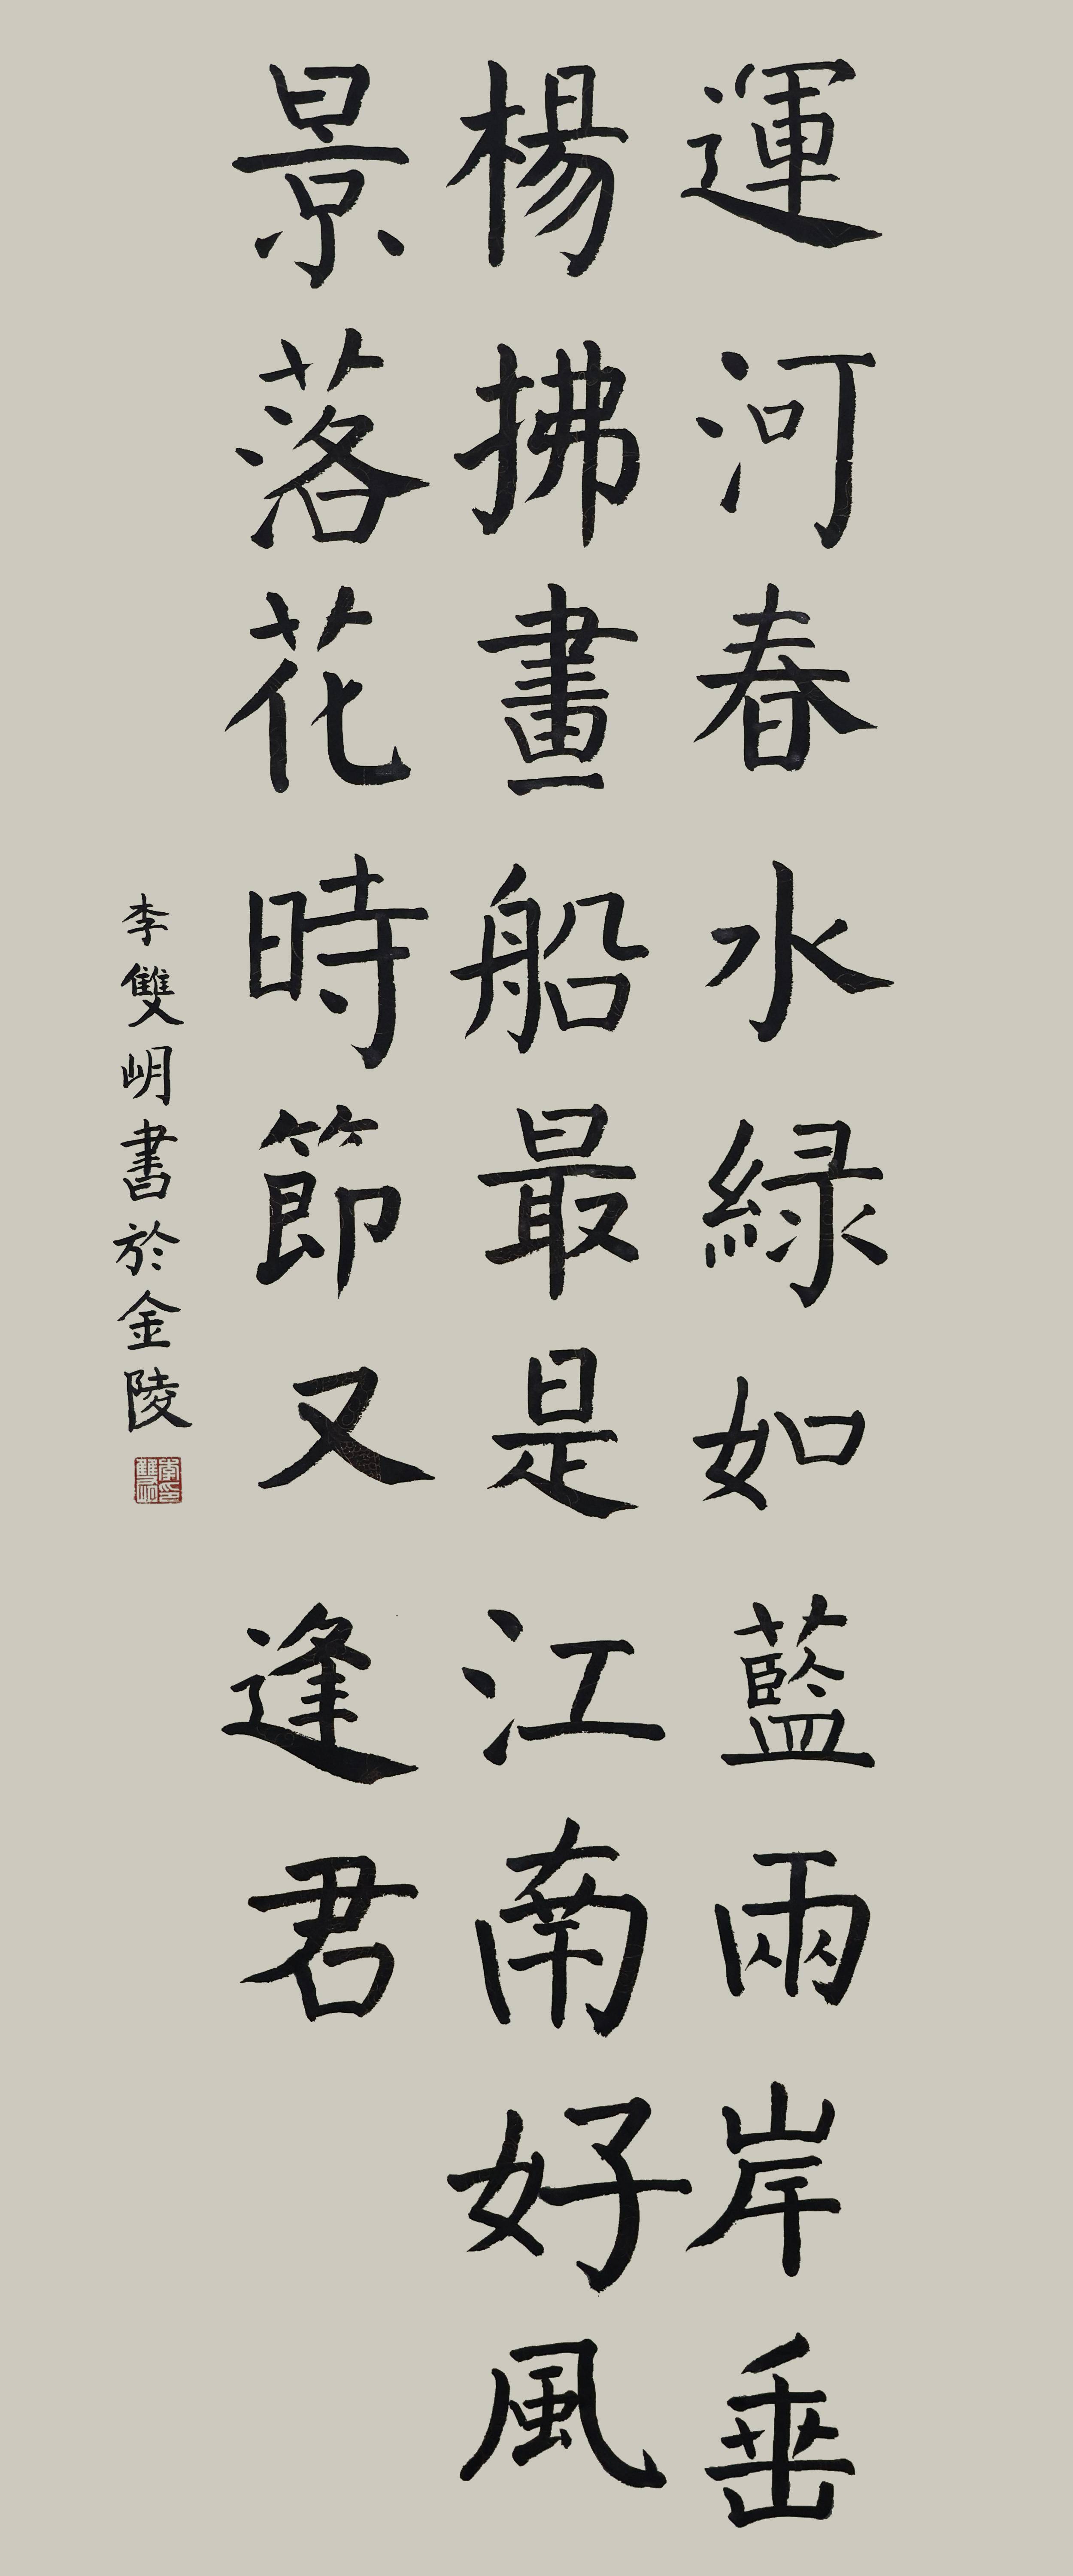 運河春水緑如藍兩岸垂
楊拂畫船最是江南好風
景落花時節又逢君
李雙明書於金陵